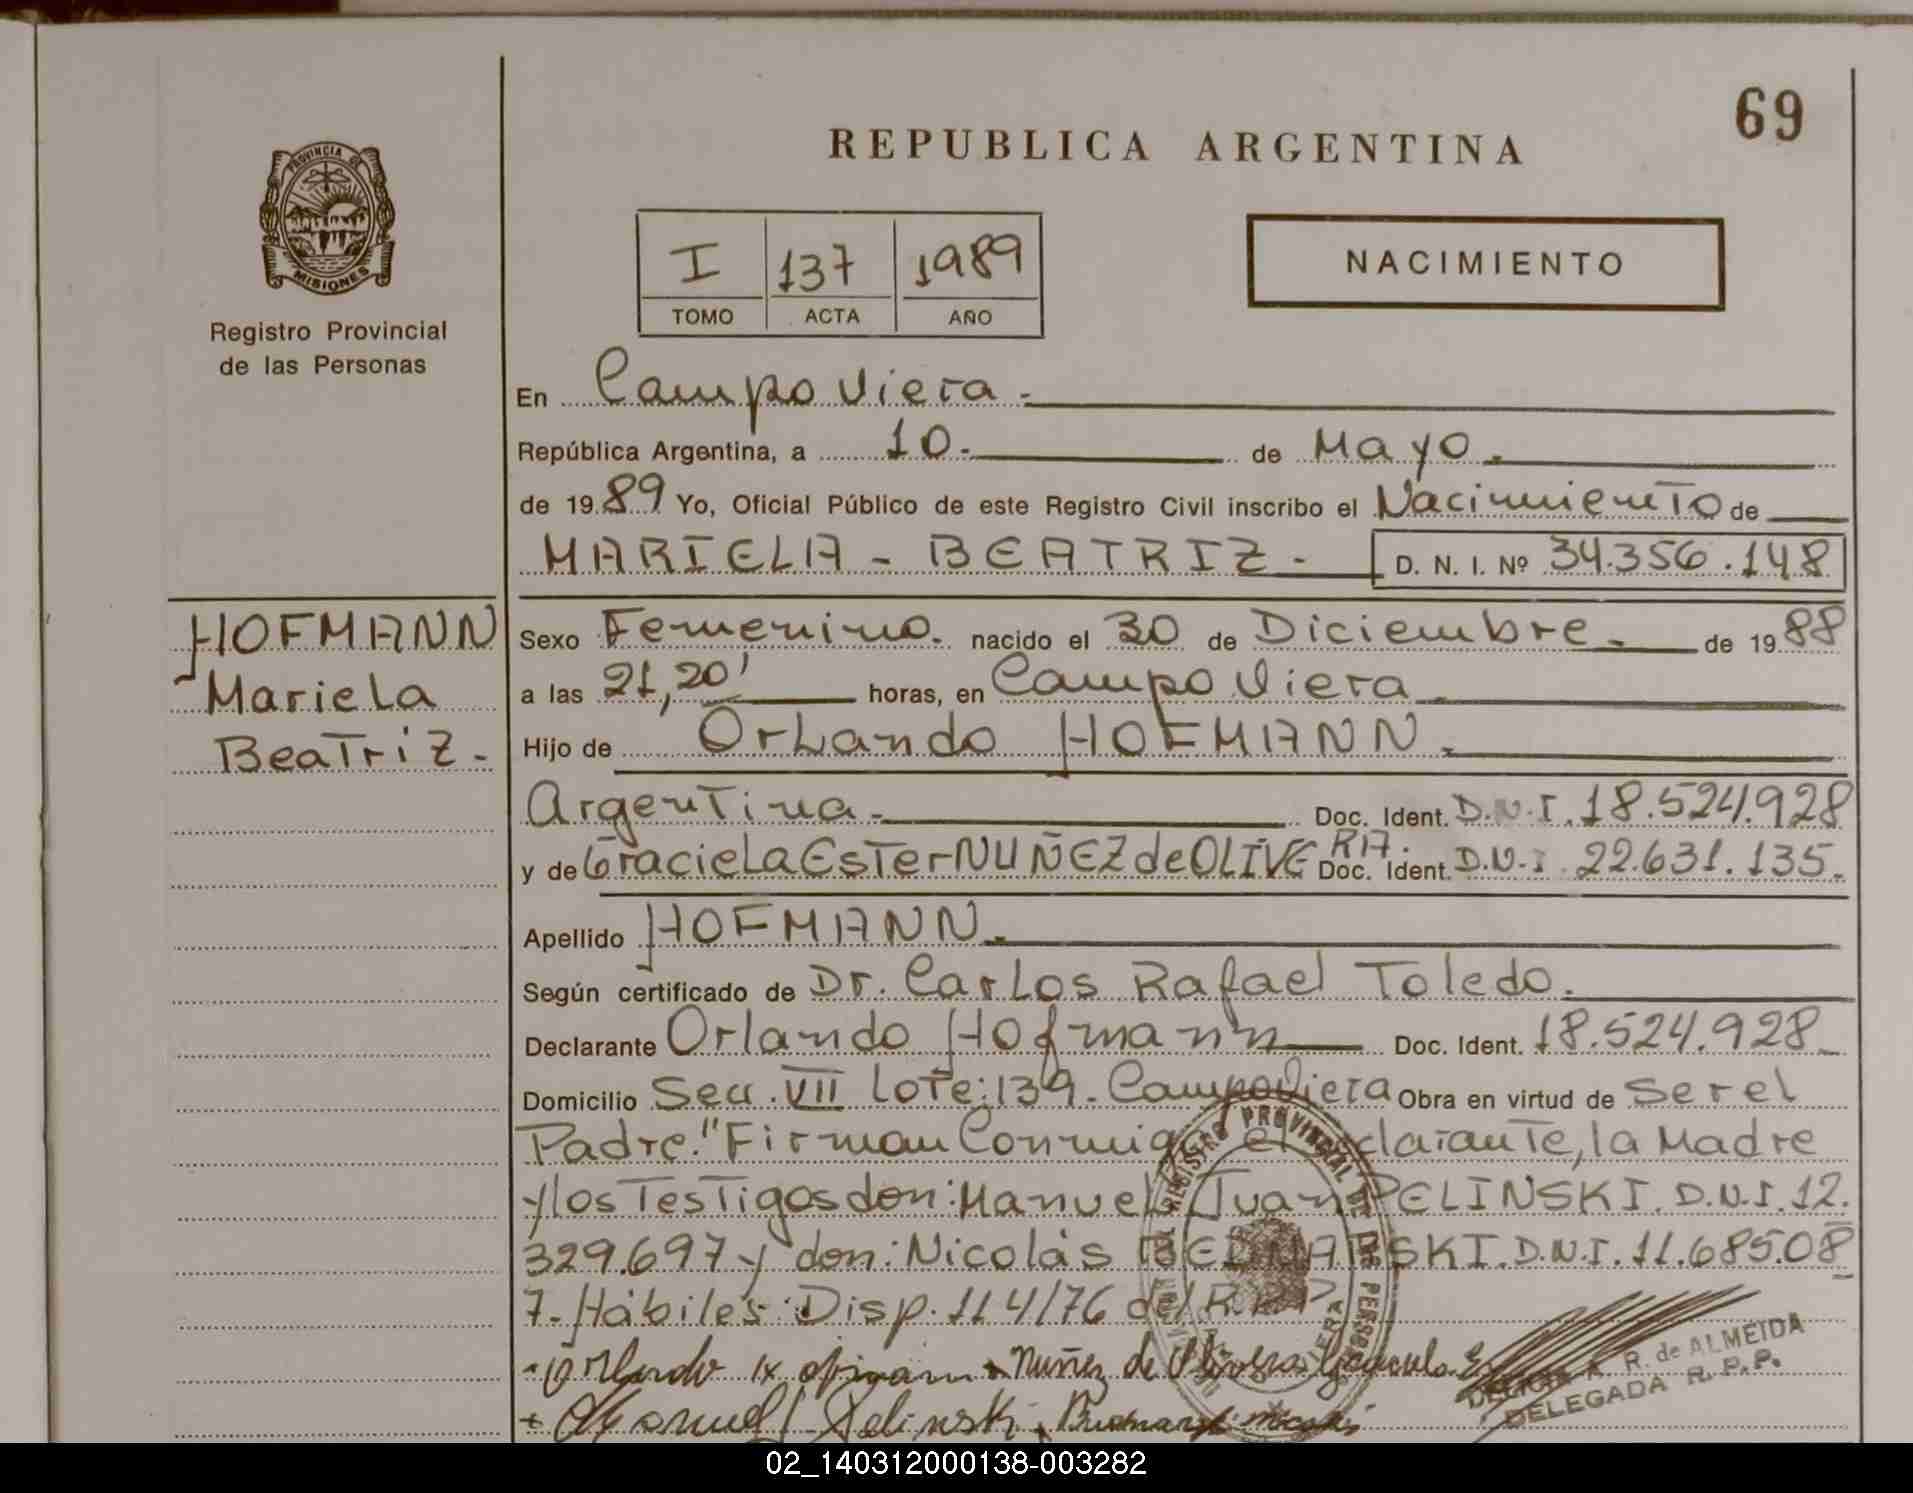 69
REPUBLICA ARGENTINA
PROVINCIA DE
MISIONES
Registro Provincial
de las Personas
I 137 1989
TOMO ACTA AÑO
NACIMIENTO
En Campo Viera.-
República Argentina, a 10.- de Mayo.
de 1989 Yo, Oficial Público de este Registro Civil inscribo el Nacimiento de
MARIELA - BEATRIZ - D. N. I. Nº 34.356.148
HOFMANN
Mariela
Beatriz.-
Sexo Femenino. nacido el 30 de Diciembre. de 1988
a las 21,20' horas, en Campo Viera.
Hijo de Orlando HOFMANN.
Argentina. Doc. Ident. D.N.I. 18.524.928
y de Graciela Ester NUÑEZ de OLIVERA. Doc. Ident. D.N.I. 22.631.135.
Apellido HOFMANN.
Según certificado de Dr. Carlos Rafael Toledo.
Declarante Orlando Hofmann Doc. Ident. 18.524.928
Domicilio Secc. VII Lote: 139. Campo Viera Obra en virtud de Ser el
Padre." Firman Conmigo el declarante, la Madre
y los Testigos don: Manuel Juan PELINSKI. D.N.I. 12.
329.697 y don: Nicolás SKI. D.N.I. 11.685.08
7.- Hábiles: Disp. 114/76 del R.
Orlando Nuñez de Olivera Graciela E.
Manuel J Pelinski
REGISTRO PROVINCIAL DE
R. de ALMEIDA
DELEGADA R.P.P.
02_140312000138-003282